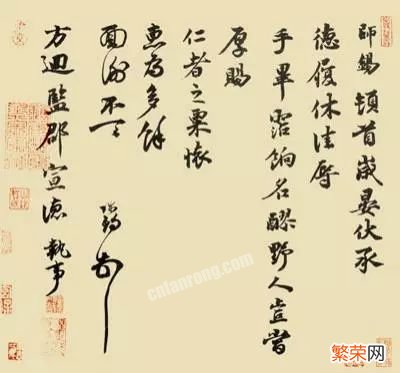 師錫頓首歲晏伏承
德履休佳辱
手畢霑餉名醪野人豈當
厚賜
仁者之粟懷
惠為多餘
面謝不一
方迴監郡宣德執事
cnfanrong.com
繁荣网